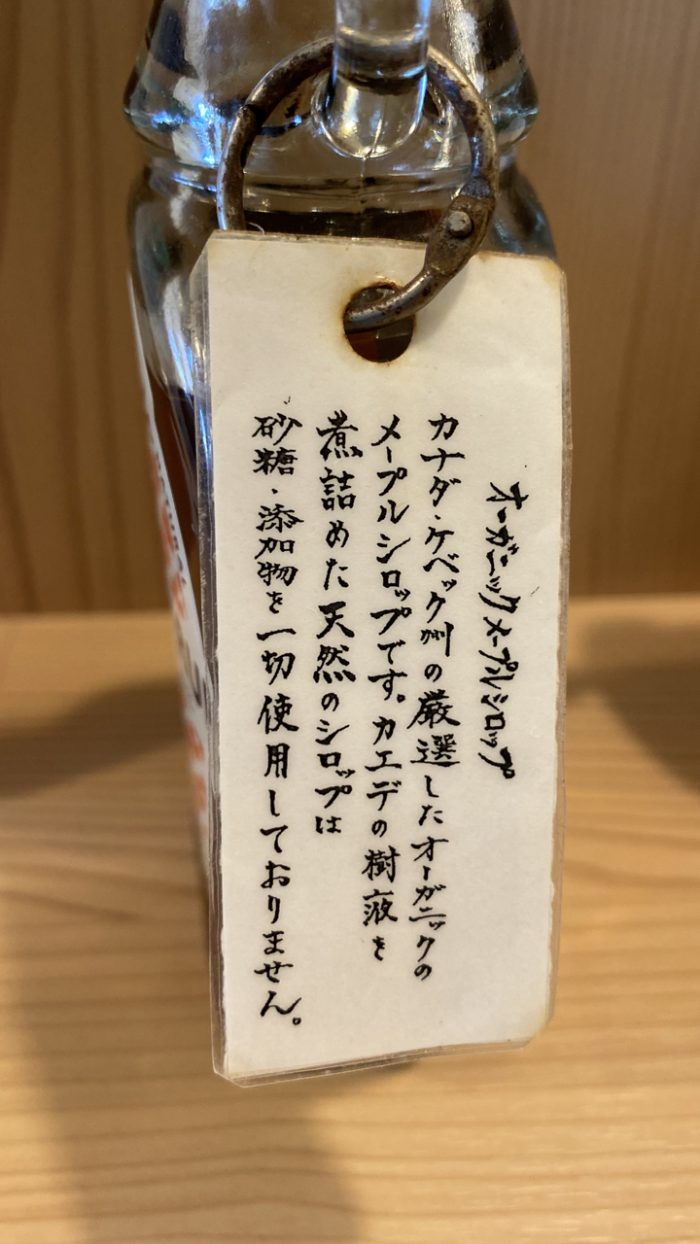 オーガニックメープルシロップ
カナダ・ケベック州の厳選したオーガニックの
メープルシロップです。カエデの樹液を
煮詰めた天然のシロップは
砂糖・添加物を一切使用しておりません。